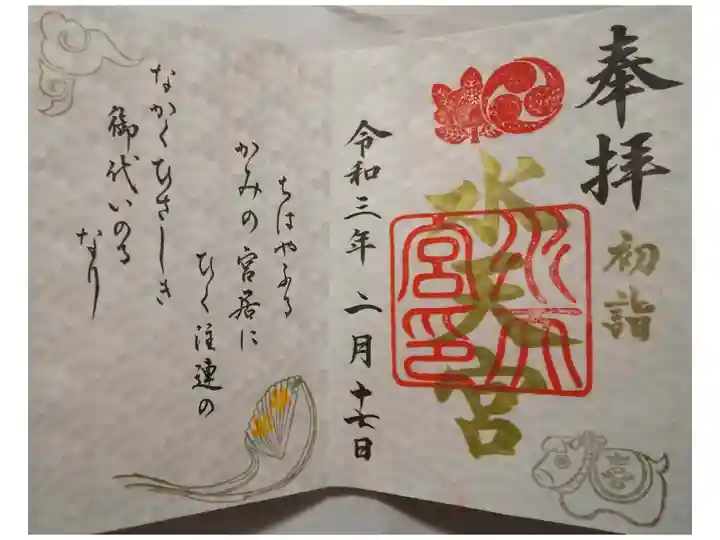 奉拝
初詣
水天宮
水天
宮印
令和三年 二月十七日
ちはやふる
かみの宮居に
ひく注連の
なかくひさしき
御代いのる
なり